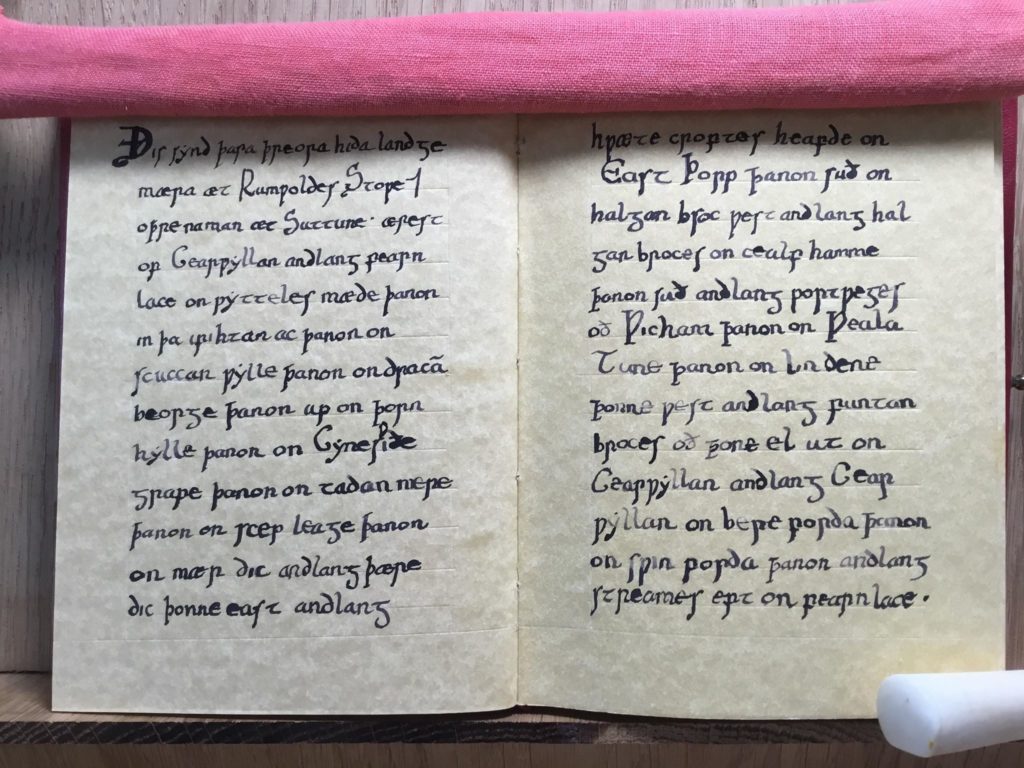 Ðis synd þara þreora hida landge
mæra æt Rumƿoldes Stoƿe ⁊
oþre naman æt Suttune· ærest
of Cearƿyllan andlang fearn
lace on ƿytteles mæde þanon
in þa ƿihtan ac þanon on
scuccan ƿylle þanon on dracã
beorge þanon up on þorn
hylle þanon on Cynesƿiðe
grafe þanon on tadan mere
þanon on scep leage þanon
on mær dic andlang þære
dic þonne east andlang
hƿæte croftes heafde on
East Þorp þanon suð on
halgan broc ƿest andlang hal
gan broces on cealf hamme
þanon suð andlang portƿeges
oð Ƿicham þanon on Ƿeala
Tune þanon on Lin dene
þonne ƿest andlang funtan
broces oð þone el ut on
Cearƿyllan andlang Cear
ƿyllan on bere forda þanon
on sƿin forda þanon andlang
streames eft on fearn lace·